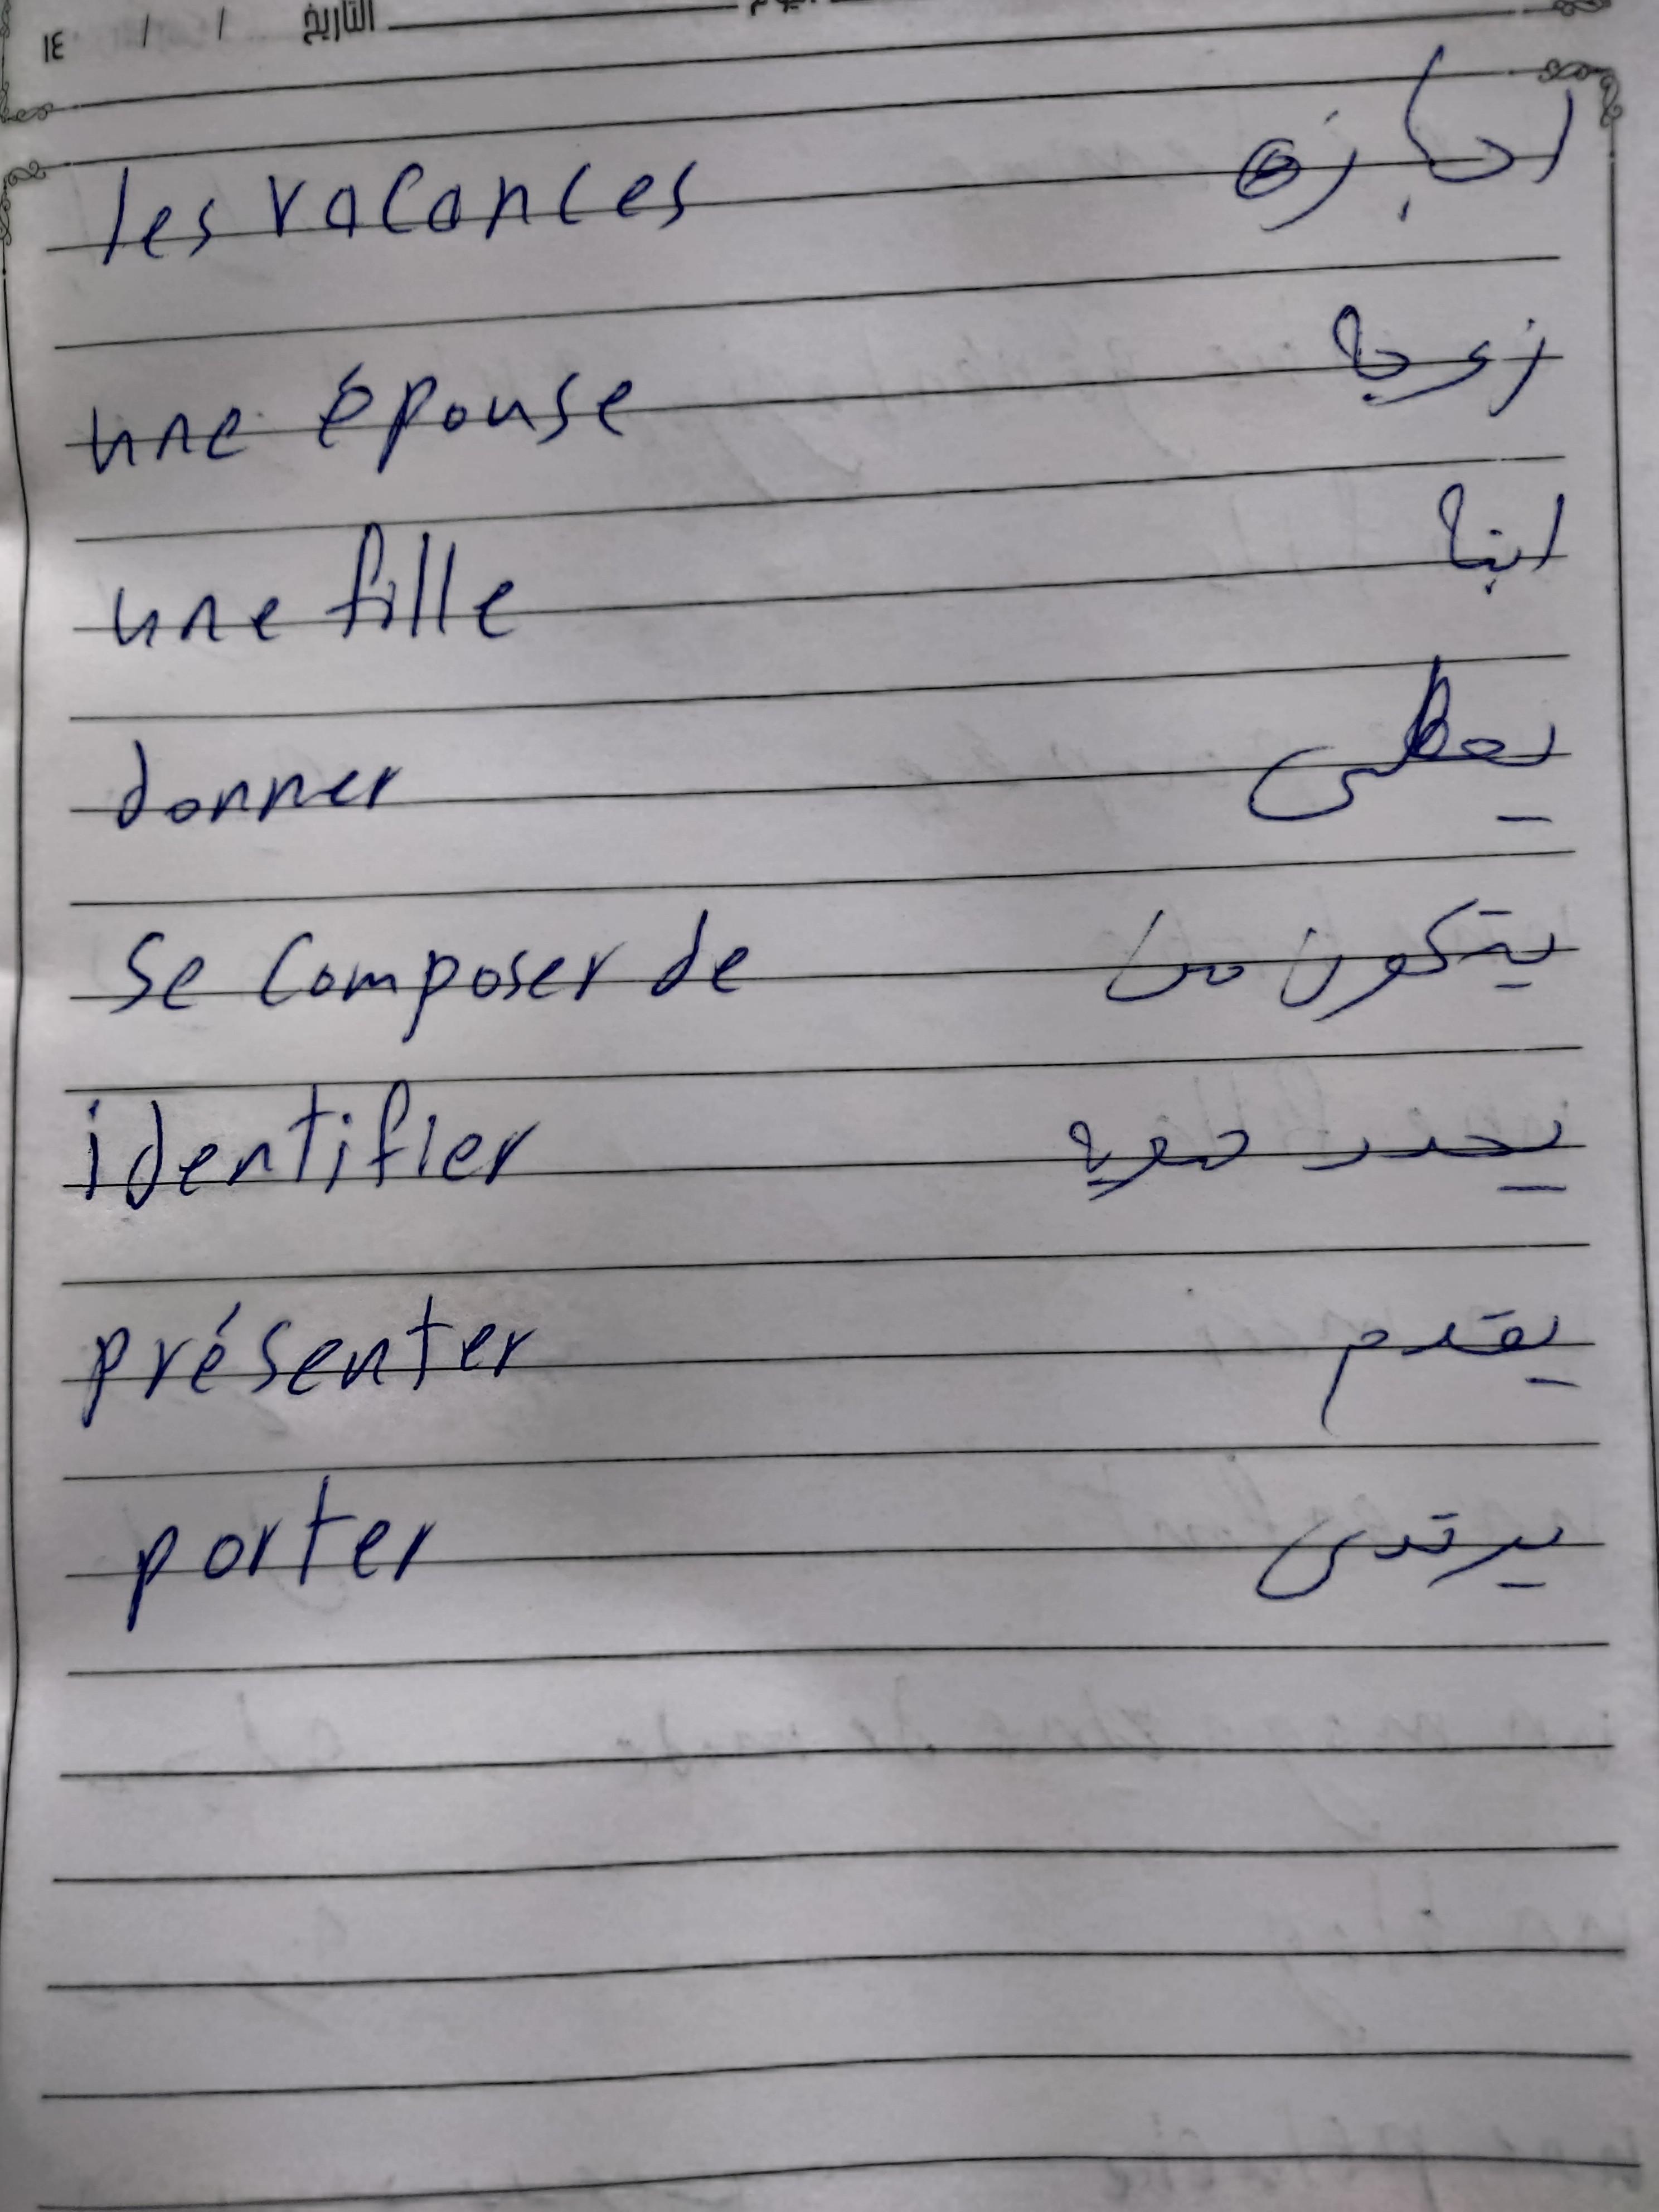 التاريخ / / ١٤
les vacances اجازه
une épouse زوجه
une fille ابنه
donner يعطى
se composer de يتكون من
identifier يحدد هويه
présenter يقدم
porter يرتدى